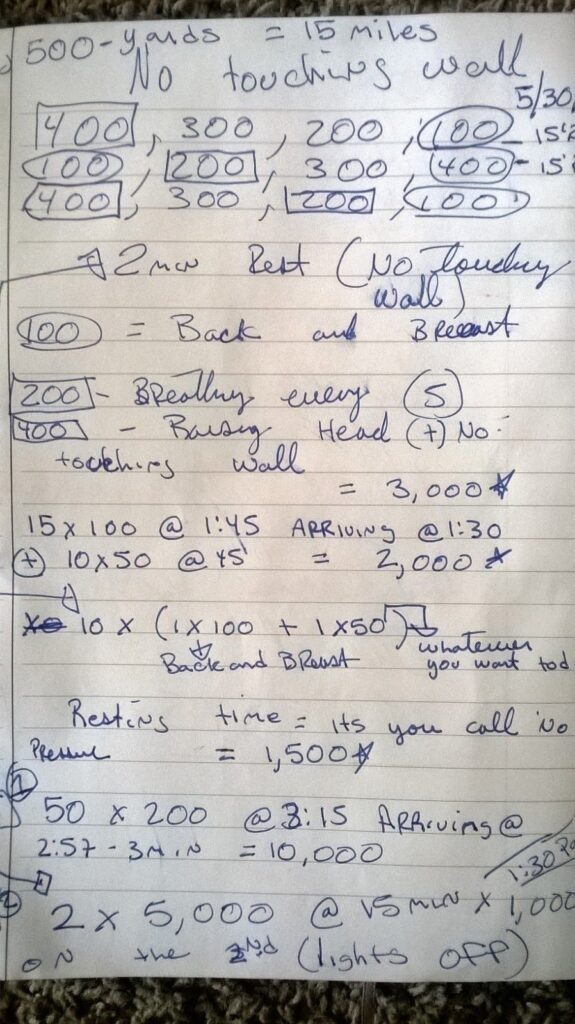 500-yards = 15 miles
No touching wall
5/30
400, 300, 200, 100 - 15'
100, 200, 300, 400 - 15'
400, 300, 200, 100
2 min Rest (No touching
wall)
100 = Back and Breast
200 - Breathing every 5
400 - Raising Head (+) No
touching wall
= 3,000
15 x 100 @ 1:45 ARRIVING @ 1:30
+ 10x50 @ 45' = 2,000
10 x (1x100 + 1x50)
Back and BReast whatever
you want tod
Resting time = its you call No
Pressure = 1,500
50 x 200 @ 3:15 ARRiving @
2:57 - 3 Min = 10,000
1:30
2 x 5,000 @ 15 min x 1,000
on the 2nd (lights off)